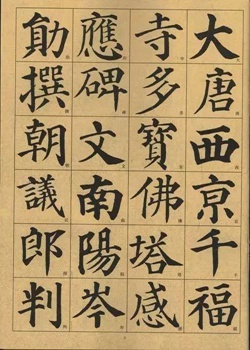 大唐西京千福
寺多寶佛塔感
應碑文南陽岑
勛撰朝議郎判